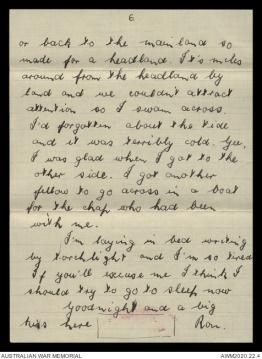 6.
or back to the mainland so
made for a headland. It's miles
around from the headland by
land and we couldn't attract
attention so I swam across.
I'd forgotten about the tide
and it was terribly cold. Gee,
I was glad when I got to the
other side. I got another
fellow to go across in a boat
for the chap who had been
with me.
I'm laying in bed writing
by torchlight and I'm so tired
If you'll excuse me I think I
should try to go to sleep now
Goodnight and a big
kiss here Ron.
AUSTRALIAN WAR MEMORIAL
AWM2020.22.4